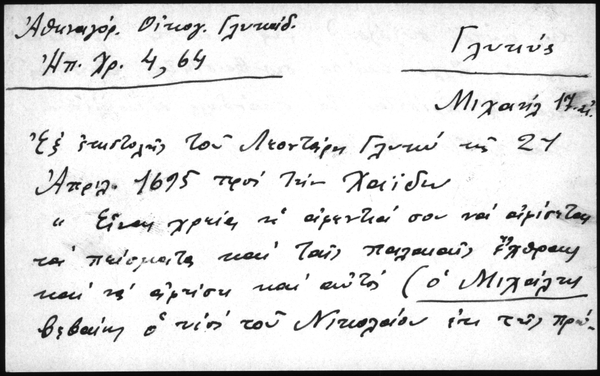 Ἀθηναγόρ. Οἰκογ. Γλυκάδ.
Ἠπ. Χρ. 4, 64
Γλυκύς
Μιχαήλ 17 αἰ.
Ἐξ ἐπιστολῆς τοῦ Λεοντάρη Γλυκύ τῆς 21
Ἀπριλ. 1695 πρός τὴν Χαϊδω
" Εἶναι χρεία ἡ ἀφεντιά σου νά ἀφίσεται
τά πείσματα καί ταῖς παλαιαῖς ἔχθραις
καί νά ἀφίσῃ καί αὐτός (ὁ Μιχαήλης
βεβαίως ὁ υἱός τοῦ Νικολάου ἐκ τῆς πρώ-